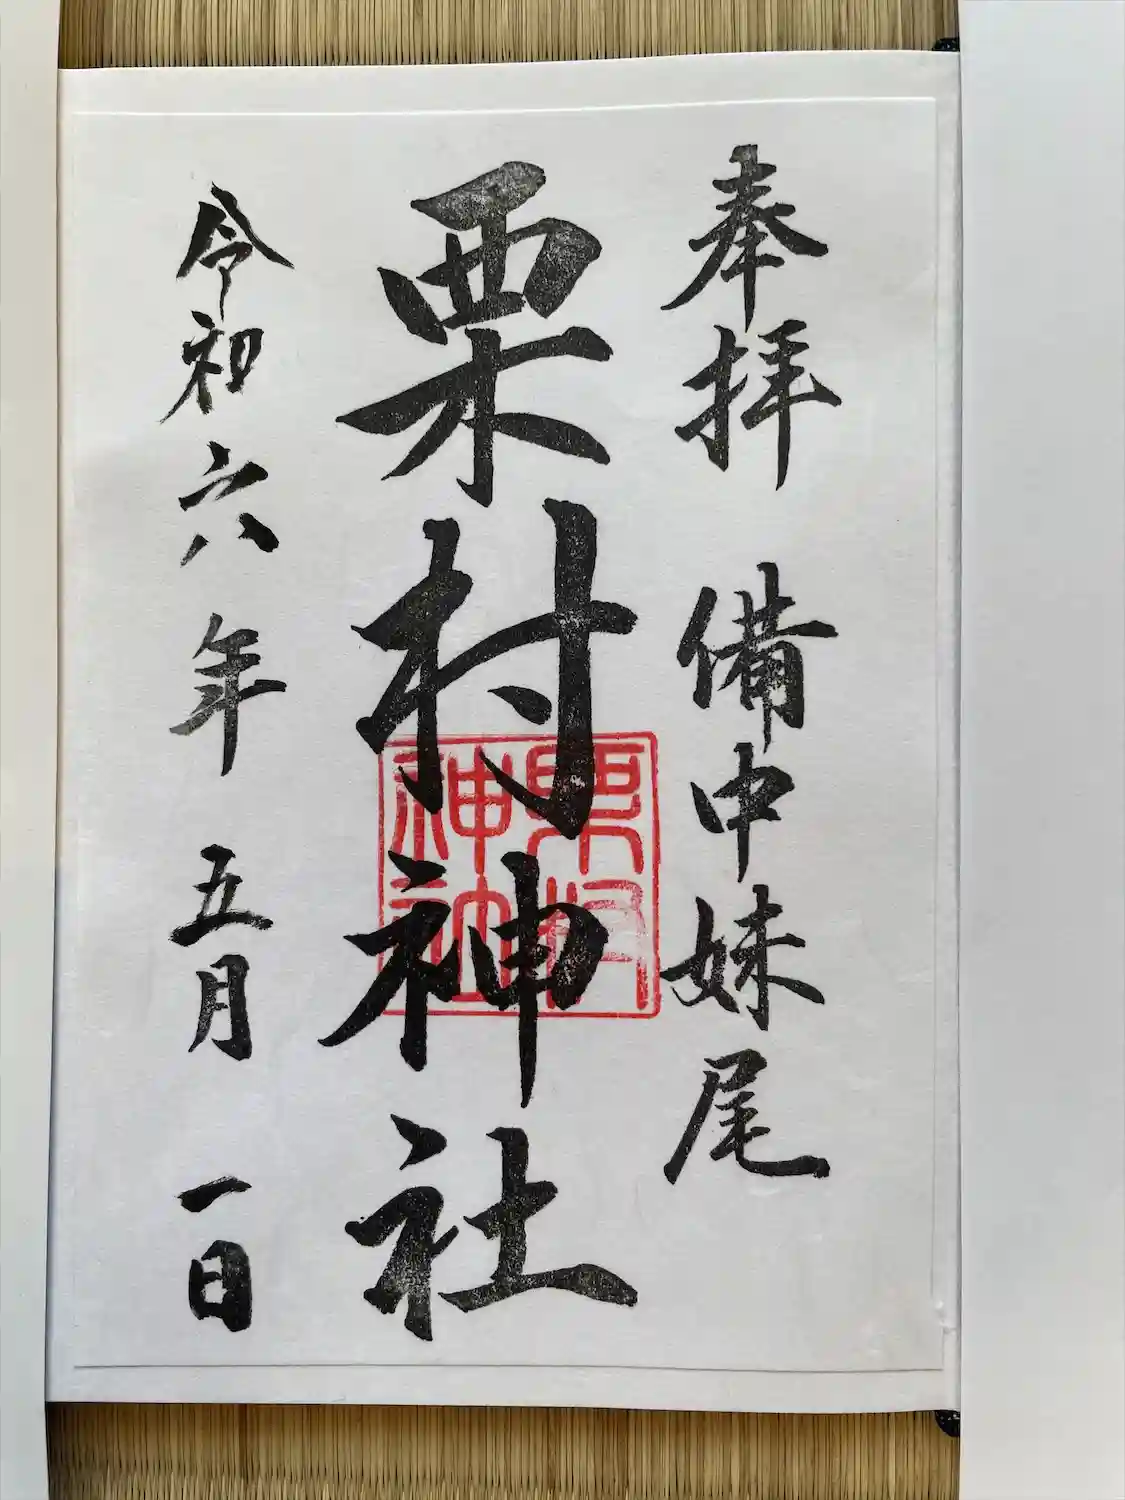 奉拝 備中妹尾
栗村神社
栗村神社
令和六年 五月 一日